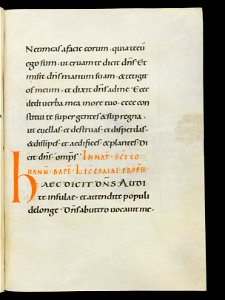 Ne timeas a facie eorum · quia tecu
ego sum · ut eruam te dicit dn̄s Et
misit dn̄s manum suam · & tetigit
os meum · et dixit dn̄s ad me · Ecce
dedi uerba mea in ore tuo · ecce con
stitui te super gentes & sup regna ·
ut euellas · et destruas · et disperdas ·
& dissipes · et aedifices · & plantes · Di
cit dn̄s · omps · IN NAT · SCI IO
HANN · BAPT · L · ESAIAE PROPH
HAEC DICIT DNS AUDI
te insulae · et attendite populi
de longe · Dn̄s ab utero uocauit me ·